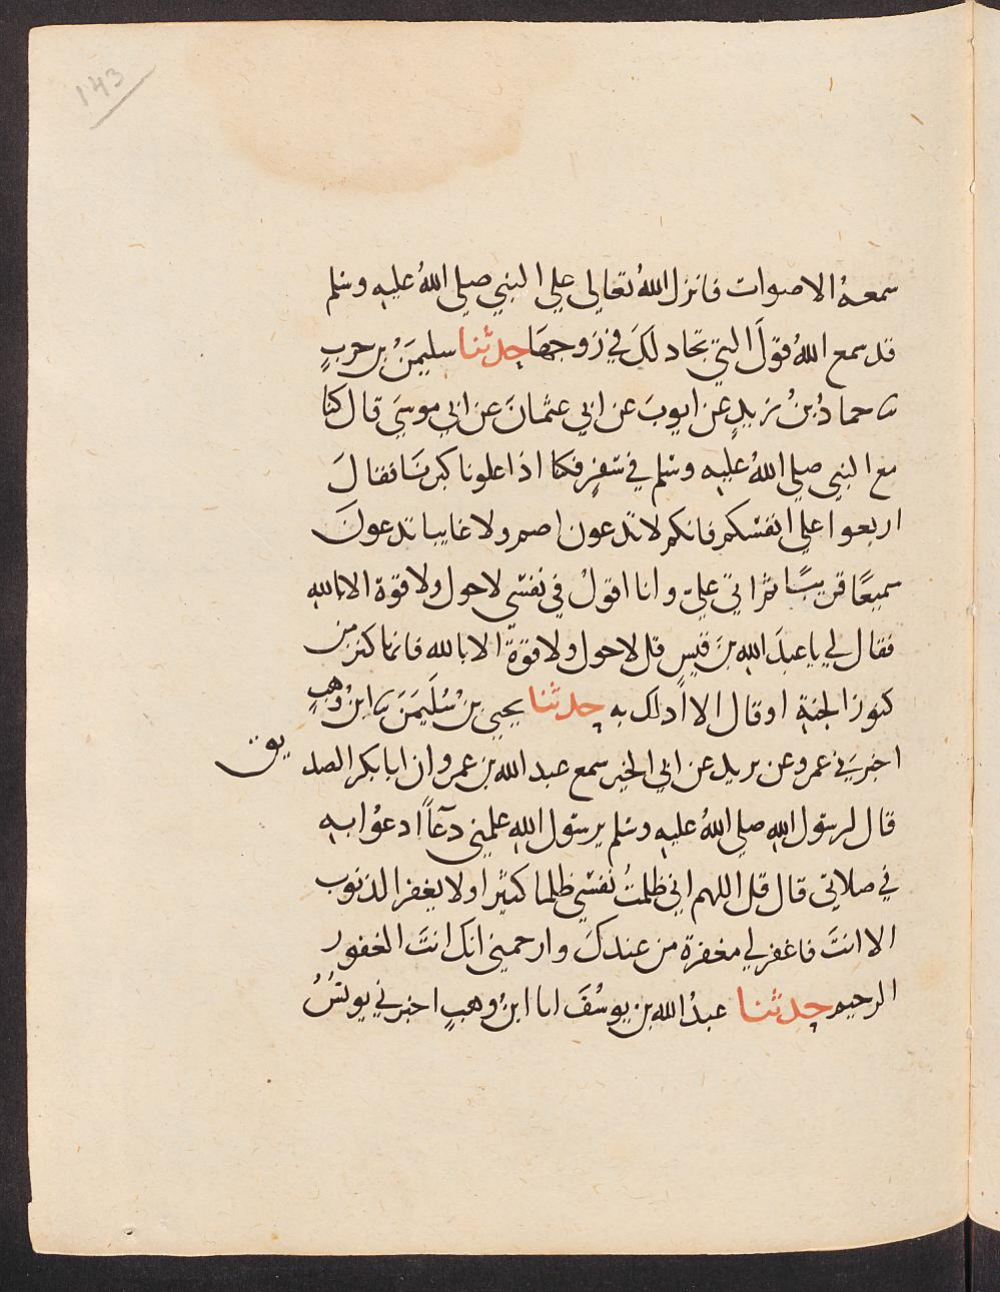 143
سمعهُ الاصوات فانزل اللهُ تعالى علي النبي صلي اللهُ عليه وسلم
قد سمع اللهُ قولَ التي تجادلكَ في زوجهَا حدثنا سليمَنُ بن حربٍ
ثنا حمادُ بنُ زيدٍ عن ايوبَ عن ابي عثمانَ عن ابي موسَي قال كنا
مع النبي صلي اللهُ عليه وسلم في سفرٍ فكنا اذا علونا كبرنَا فقالَ
اربعوا علي انفسكم فانكم لا تدعون اصم ولا غايبا تدعونَ
سميعًا قريبًا ثم اتي عليّ وانا اقولُ في نفسي لا حول ولا قوة الا بالله
فقال لي يا عبدَ اللهِ بنَ قيسٍ قل لا حول ولا قوةَ الا بالله فانها كنز من
كنوز الجنةِ او قال الا ادلك به حدثنا يحيى بنُ سُلَيمَنَ ثنا ابنُ وهبٍ
اخبرَني عمرو عن يزيد عن ابي الخير سمع عبد الله بن عمرو ان ابا بكر الصد
يق
قال لرسول اللهِ صلي اللهُ عليه وسلم يرسول اللهِ علمني دعآً ادعوُا به
في صلاتي قال قل اللهم اني ظلمتُ نفسي ظلما كثيرا ولا يغفر الذنوب
الا انتَ فاغفر لي مغفرة من عندكَ وارحمني انك انتَ الغفور
الرحيم حدثنا عبدُ الله بن يوسُفَ انا ابنُ وهبٍ اخبرني يونسُ